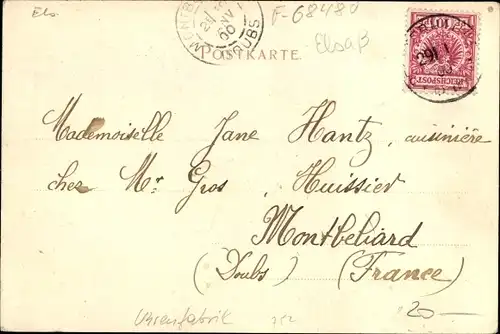 Els
F-68480
Elsaß
POSTKARTE
REICHSPOST
29/1
DOUBS
Mademoiselle Jane Hantz, cuisinière
chez Mr Gros, Huissier
Montbeliard
(Doubs) (France)
Uhrenfabrik
20 —